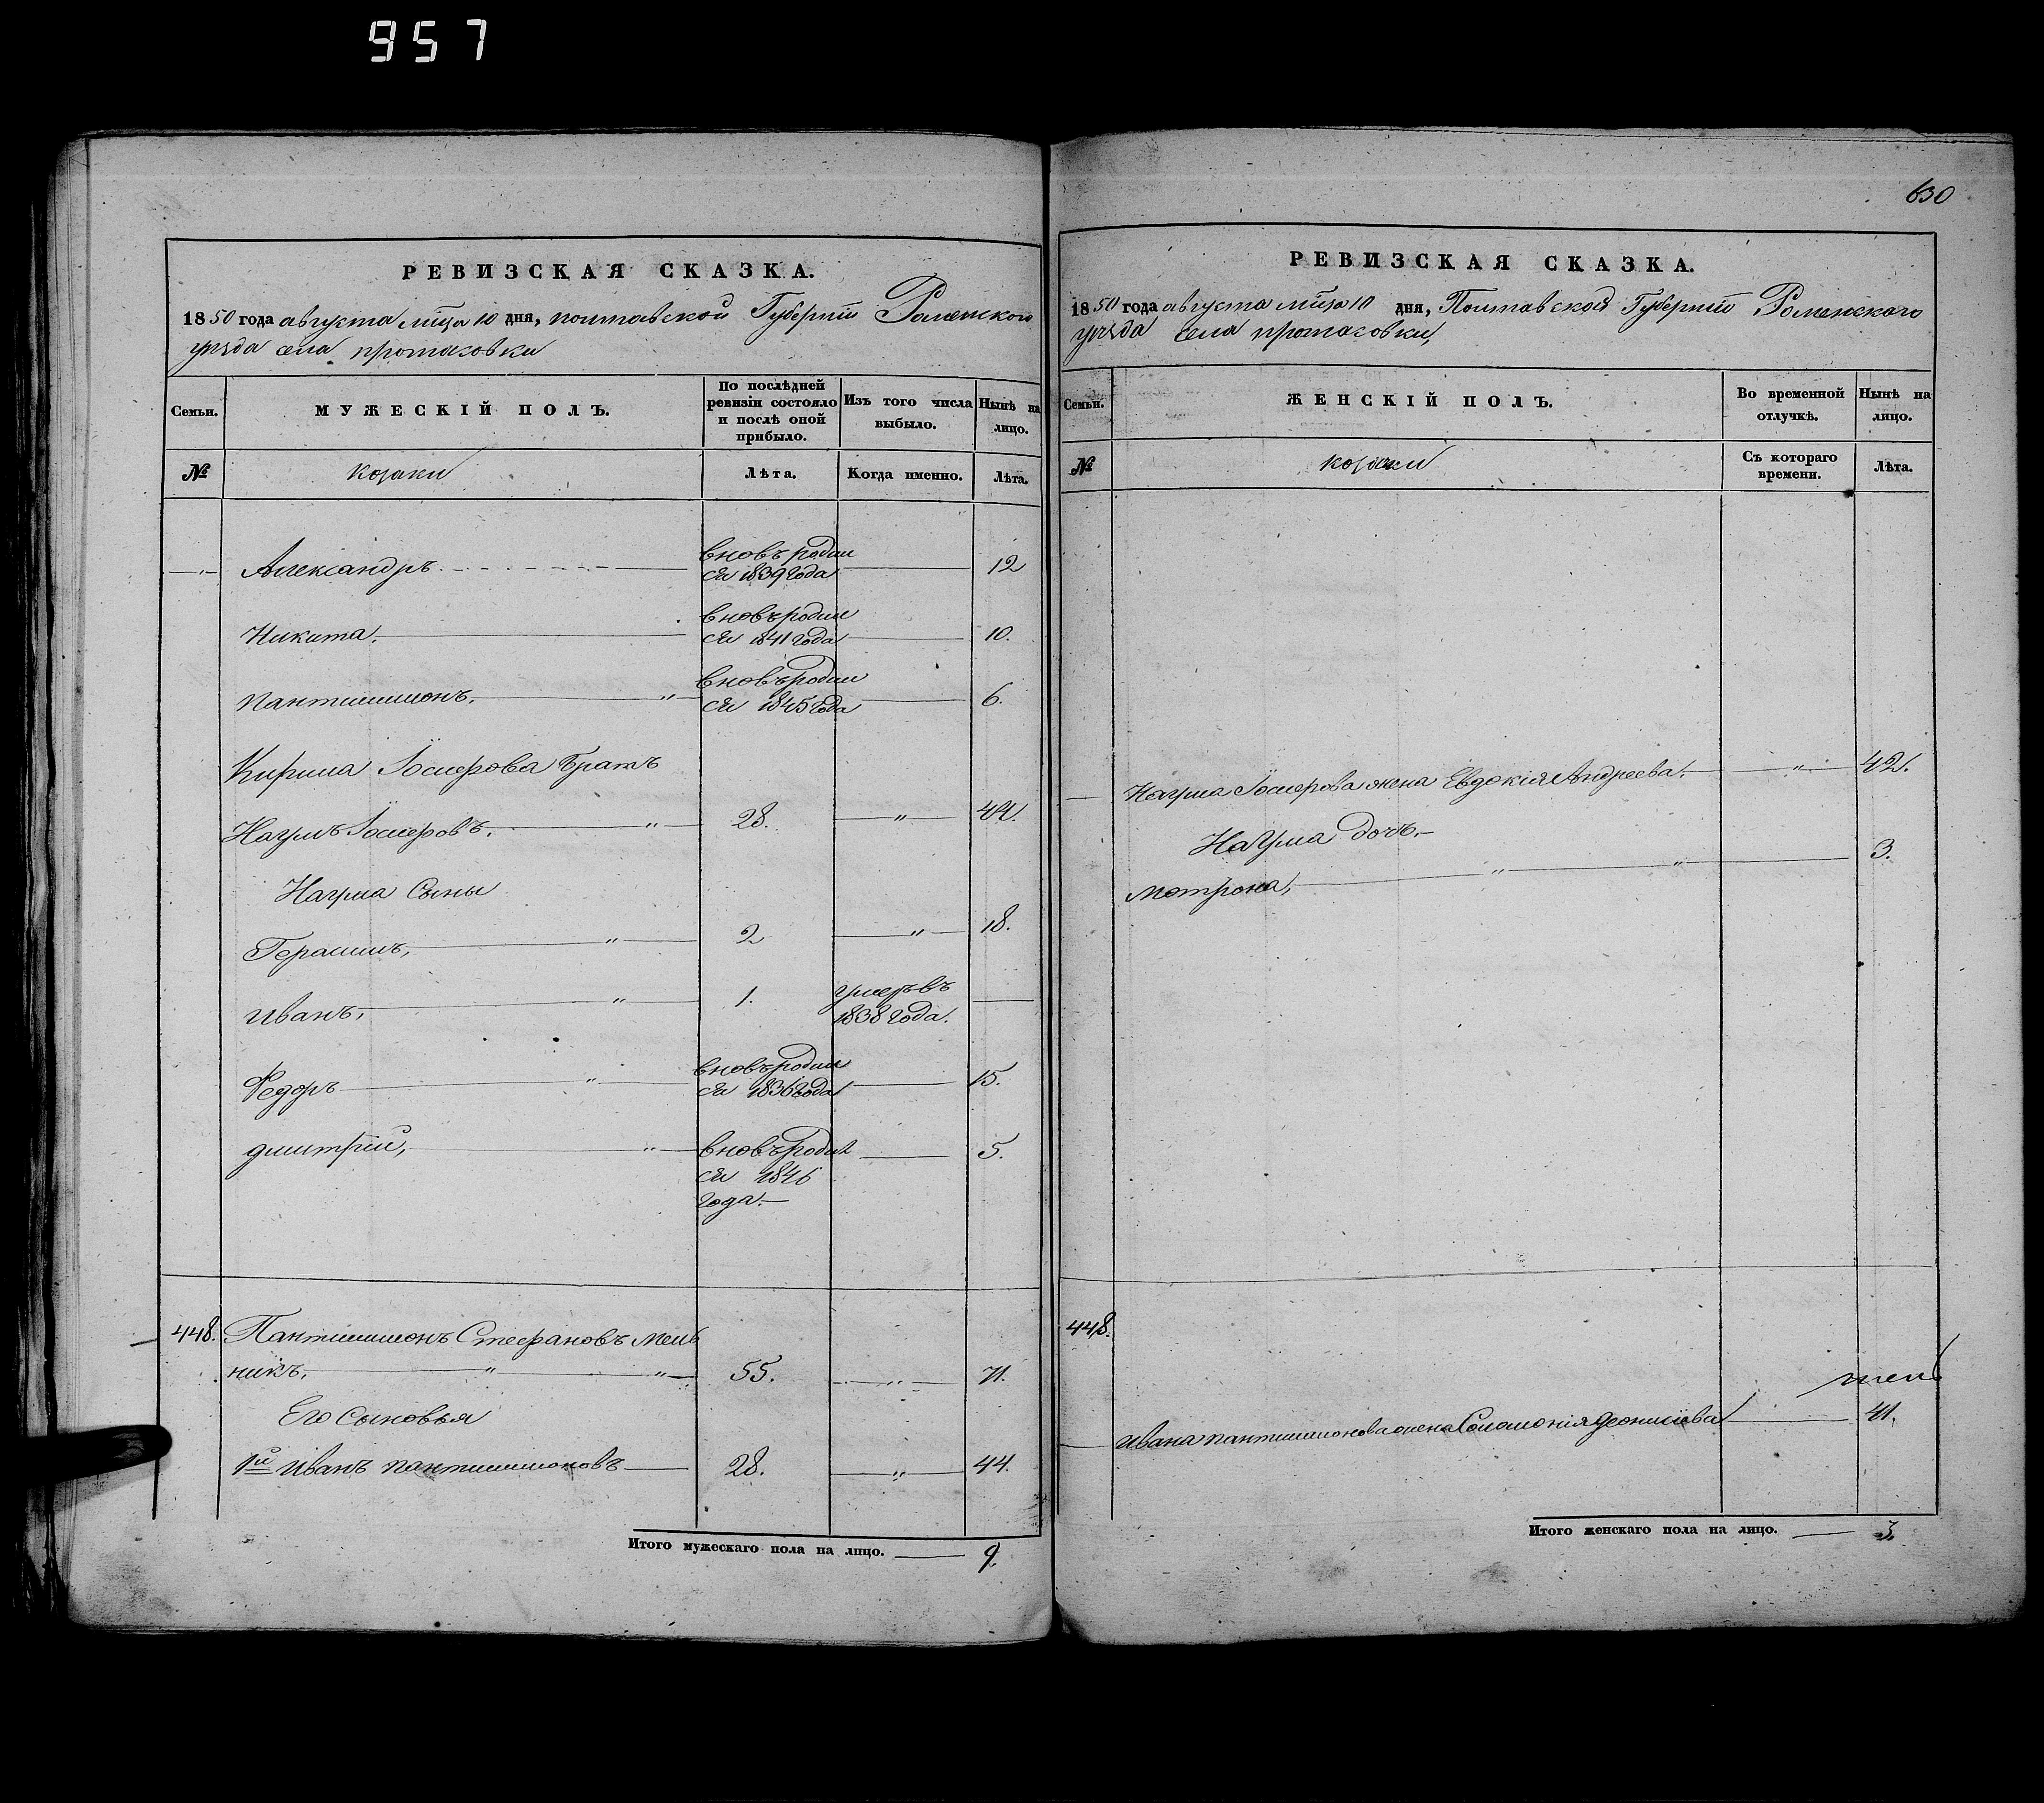 957
РЕВИЗСКАЯ СКАЗКА.
1850 года августа мца 10 дня, полтавской Губернии Роменского
уезда села протасовки
Семьи.
МУЖЕСКІЙ ПОЛЪ.
По послѣдней ревизіи состояло и послѣ оной прибыло.
Изъ того числа выбыло.
Нынѣ на лицо.
№
козаки
Лѣта.
Когда именно.
Лѣта.
Александръ вновь родил
ся 1839 года 12
Никита. вновь родил
ся 1841 года 10.
пантилимонъ. вновь родил
ся 1845 года 6.
Кирила Іосифова братъ
Наумъ Іосифовъ. 28. 44.
Наума Сыны
Герасимъ, 2 18.
Иванъ, 1. умеръ въ
1838 года.
Федоръ вновь родил
ся 1836 года 15.
дмитрій, вновь родил
ся 1846 5.
года.
448. Пантилимонъ Стефановъ мель
никъ. 55. 71.
Его сыновья
1й Иванъ пантилимоновъ 28. 44.
Итого мужескаго пола на лицо. 9
630
РЕВИЗСКАЯ СКАЗКА.
1850 года августа мца 10 дня, Полтавской Губернии Роменского
уезда села протасовки,
Семьи.
ЖЕНСКІЙ ПОЛЪ.
Во временной отлучкѣ.
Нынѣ на лицо.
№
козачки
Съ котораго времени.
Лѣта.
Наума Іосифова жена Евдокія Андреева. 42.
Наума дочь.
мотрона, 3.
448.
Ивана пантилимонова жена Соломонія 41.
Итого женскаго пола на лицо. 3